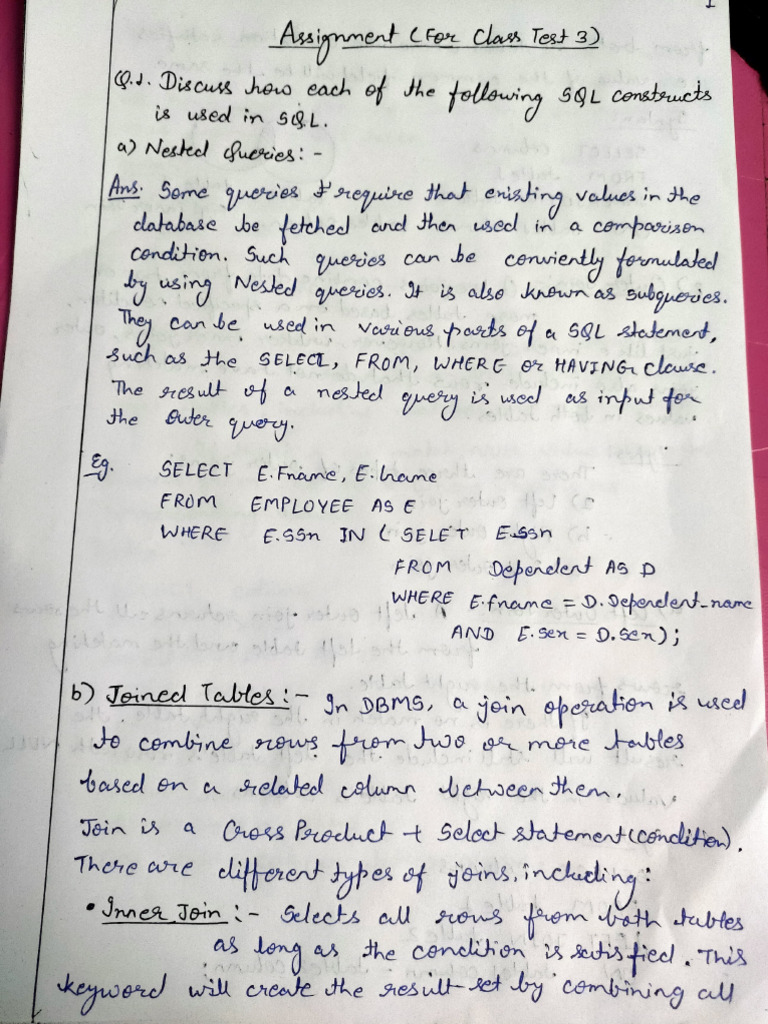 1
Assignment (For Class Test 3)
Q.1. Discuss how each of the following SQL constructs
is used in SQL.
a) Nested Queries: -
Ans. Some queries require that existing values in the
database be fetched and then used in a comparison
condition. Such queries can be conviently formulated
by using Nested queries. It is also known as subqueries.
They can be used in various parts of a SQL statement,
such as the SELECT, FROM, WHERE or HAVING clause.
The result of a nested query is used as input for
the Outer query.
Eg. SELECT E.Fname, E.Lname
FROM EMPLOYEE AS E
WHERE E.SSn IN ( SELET E.ssn
FROM Dependent AS D
WHERE E.fname = D.Dependent_name
AND E.sex = D.sex);
b) Joined Tables :- In DBMS, a join operation is used
to combine rows from two or more tables
based on a related column between them.
Join is a Cross Product + Select statement (condition).
There are different types of joins, including:
• Inner Join :- Selects all rows from both tables
as long as the condition is satisfied. This
keyword will create the result-set by combining all